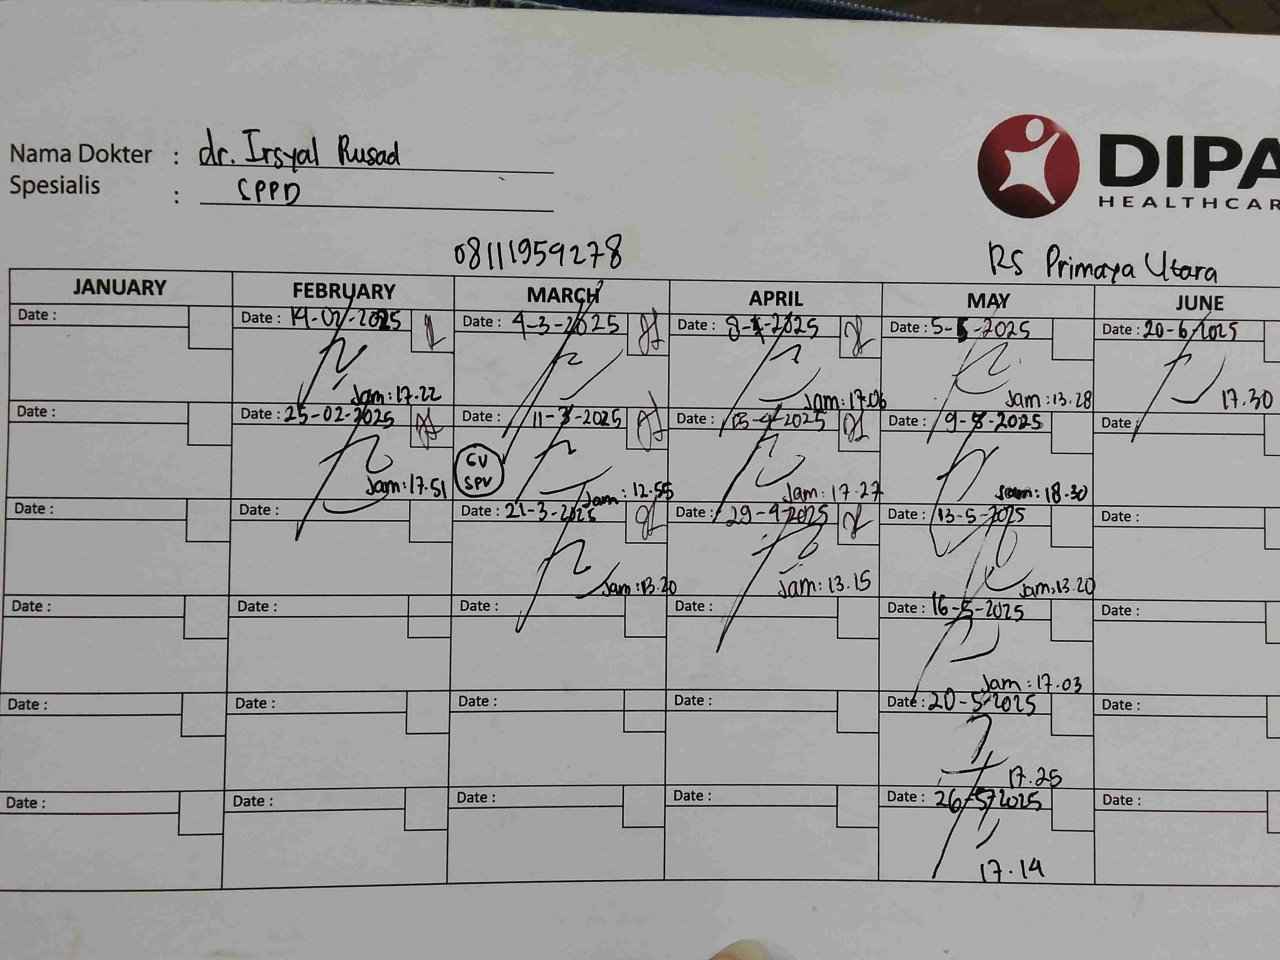 Nama Dokter : dr. Irsyal Rusad
Spesialis : SPPD
DIPA
HEALTHCAR
08111959278
RS Primaya Utara
JANUARY FEBRUARY MARCH APRIL MAY JUNE
Date : Date : 14-02-2025 Date : 4-3-2025 Date : 8-4-2025 Date : 5-5-2025 Date : 20-6-2025
Jam : 17.22 Jam : 17.06 Jam : 13.28 17.30
Date : Date : 25-02-2025 11-3-2025 Date : 15-4-2025 Date : 9-5-2025 Date :
GV
SPV
Jam : 17.51 Jam : 12.55 Jam : 17.27 Jam : 18.30
Date : Date : Date : 21-3-2025 Date : 29-4-2025 Date : 13-5-2025 Date :
Jam : 13.20 Jam : 13.15 Jam : 13.20
Date : Date : Date : Date : Date : 16-5-2025 Date :
Jam : 17.03
Date : Date : Date : Date : Date : 20-5-2025 Date :
17.25
Date : Date : Date : Date : Date : 26-5-2025 Date :
17.14